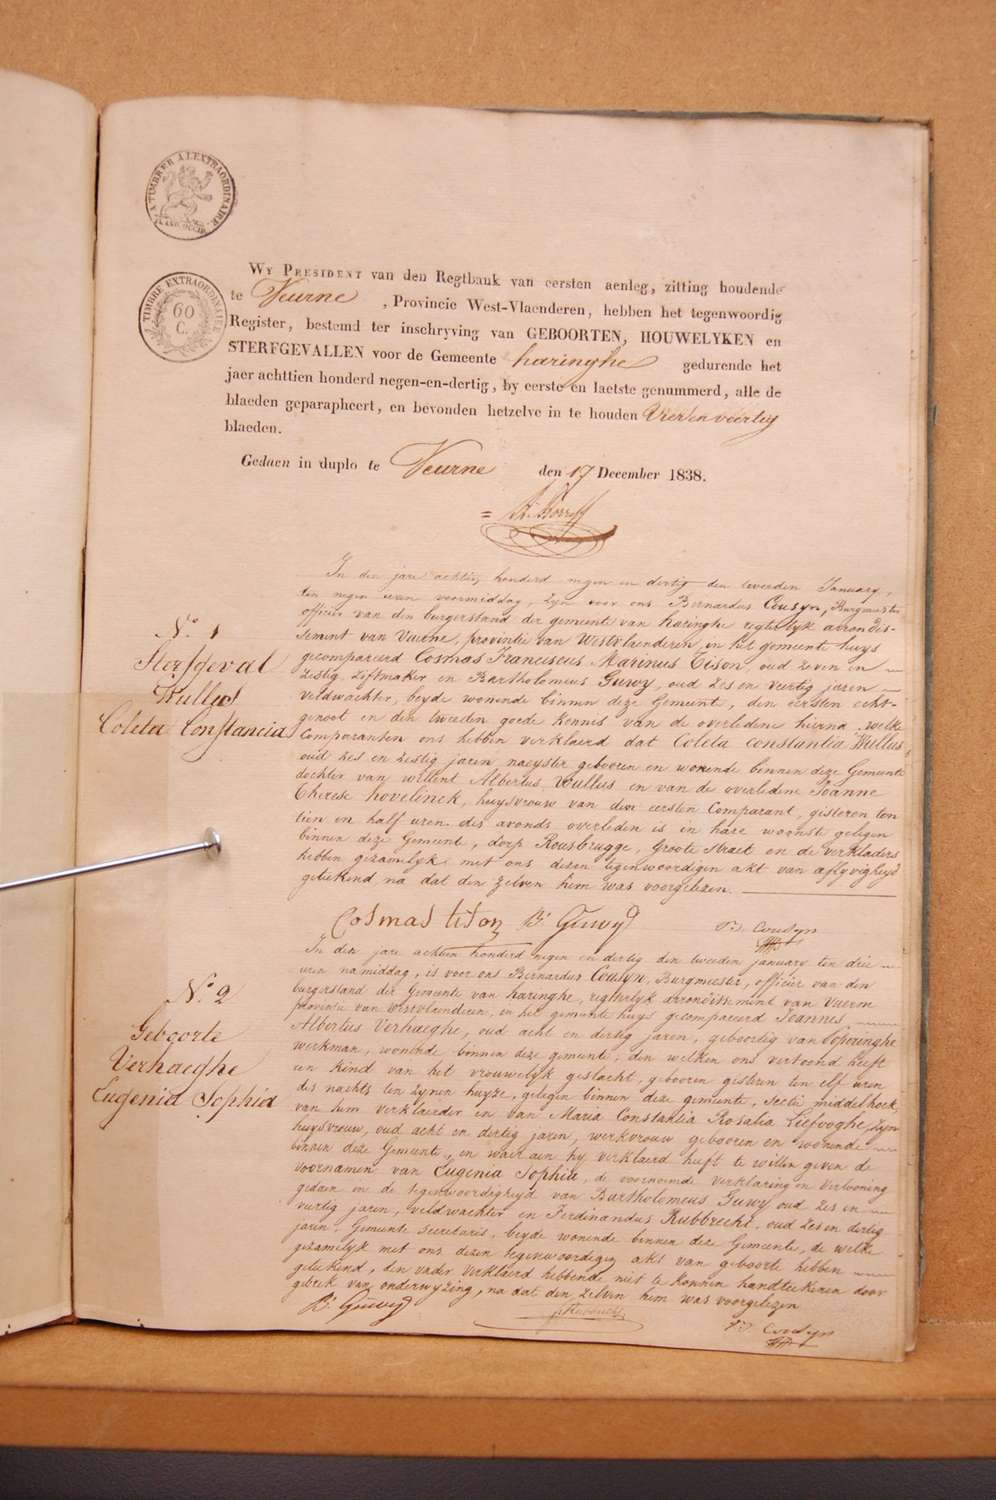 A TIMBRER A L'EXTRAORDINAIRE
TIMBRE EXTRAORDINAIRE
60
C.
WY PRESIDENT van den Regtbank van eersten aenleg, zitting houdende
te Veurne , Provincie West-Vlaenderen, hebben het tegenwoordig
Register, bestemd ter inschryving van GEBOORTEN, HOUWELYKEN en
STERFGEVALLEN voor de Gemeente haringhe gedurende het
jaer achttien honderd negen-en-dertig, by eerste en laetste genummerd, alle de
blaeden geparapheert, en bevonden hetzelve in te houden Vier en veertig
blaeden.
Gedaen in duplo te Veurne den 17 December 1838.
In den jare achtien honderd negen en dertig den tweeden January,
ten negen uren voormiddag, zyn voor ons Bernardus Cousyn, Burgmeester
officier van den burgerstand der gemeente van haringhe regterlyk arrondis-
sement van Vuerne, provintie van Westvlaenderen, in het gemeente huys
gecompareerd Cosmas Franciscus Marinus Tison, oud zeven en
zestig, zeefmaker en Bartholomeus Guwy, oud zes en veertig jaren
veldwachter, beyde wonende binnen deze Gemeente, den eersten echt-
genoot en den tweeden goede kennis van de overledene hierna, welke
Comparanten ons hebben verklaerd dat Coleta Constantia Wullus
oud zes en zestig jaren naeyster gebooren en wonende binnen deze Gemeente
dochter van willent Albertus Wullus en van de overledene Joanne
Therese hovelinck, huysvrouw van den eersten Comparant, gisteren ten
tien en half uren des avonds overleden is in hare woonste gelegen
binnen deze Gemeente, dorp Rousbrugge, Groote Straet en de verkladers
hebben gezamelyk met ons dezen tegenwoordigen akt van aflyvigheyd
geteekend na dat den zelven hem was voorgelezen.
N.º 1
Sterfgeval
Wullus
Coleta Constancia
Cosmas tison Bt Guwy Bd Cousyn
In den jare achtien honderd negen en dertig den tweeden january ten drie
uren namiddag, is voor ons Bernardus Cousyn, Burgmeester, officier van den
burgerstand der Gemeente van haringhe, regterlyk arrondissement van Vuerne
provintie van Westvlaenderen, in het gemeente huys gecompareerd Joannes
Albertus Verhaeghe, oud acht en dertig jaren, geboortig van Poperinghe
werkman, wonende binnen deze gemeente, den welken ons vertoond heeft
een kind van het vrouwelyk geslacht, gebooren gisteren ten elf uren
des nachts ten zynen huyze, gelegen binnen deze gemeente, Sectie middelhoek,
van hem verklaerder en van Maria Constantia Rosalia Liefooghe, zyn
huysvrouw, oud acht en dertig jaren, werkvrouw gebooren en wonende
binnen deze Gemeente, en waer aen hy verklaerd heeft te willen geven de
voornamen van Eugenia Sophia, de voornoemde verklaring en vertooning
gedaen in de tegenwoordigheyd van Bartholomeus Guwy oud zes en
veertig jaren, veldwachter en Ferdinandus Rubbrecht, oud zes en dertig
jaren, Gemeente secretaris, beyde wonende binnen deze Gemeente, de welke
gezamelyk met ons dezen tegenwoordigen akt van geboorte hebben
geteekend, den vader verklaerd hebbende niet te konnen handteekenen door
gebrek van onderwyzing, na dat den zelven hem was voorgelezen
N.º 2
Geboorte
Verhaeghe
Eugenia Sophia
Bt Guwy Rubbrecht Bd Cousyn